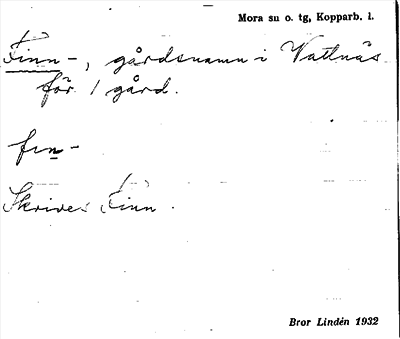 Mora su o. tg, Kopparb. l.
Finn-, gårdsnamn i Vattnäs
för 1 gård.
fin-
Skrives Finn.
Bror Lindén 1932